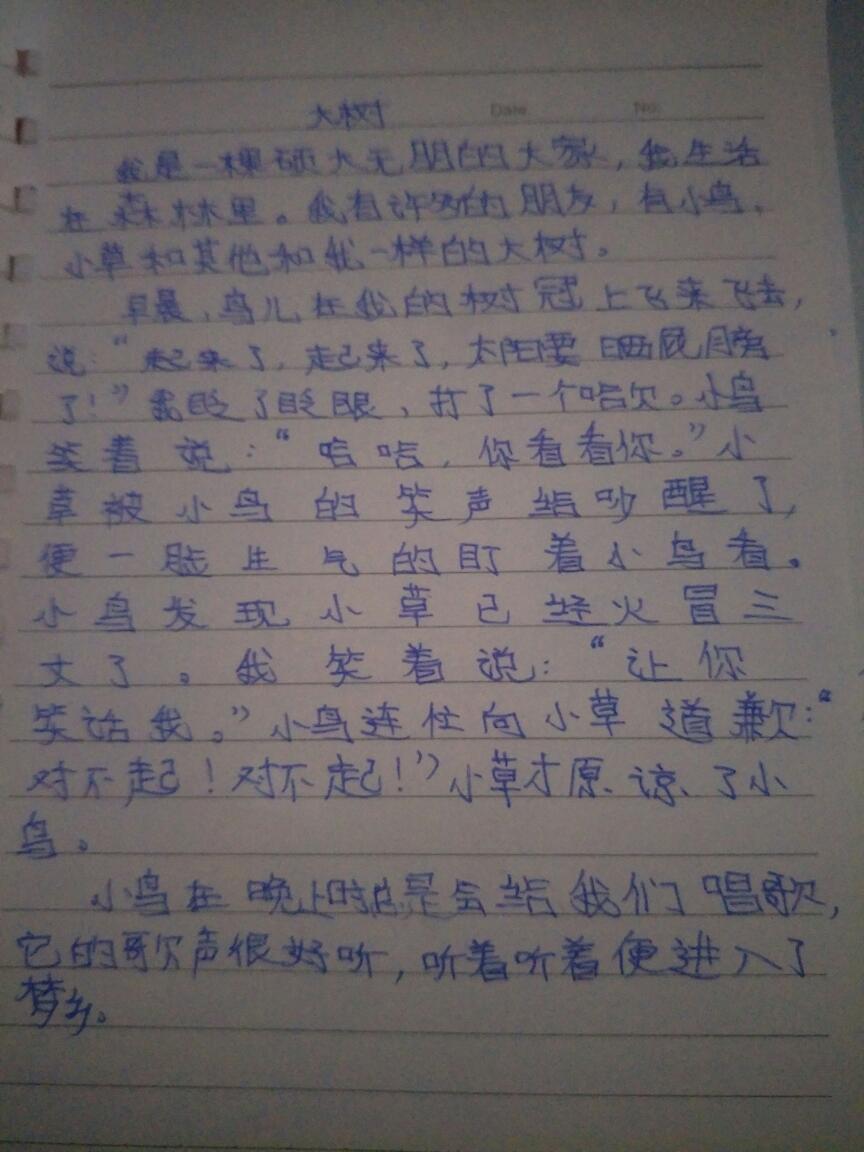 大树
Date
No:
我是一棵硕大无朋的大家，我生活
在森林里。我有许多的朋友，有小鸟、
小草和其他和我一样的大树。
早晨，鸟儿在我的树冠上飞来飞去，
说：“起来了，起来了，太阳要晒屁月旁
了！”我眨了眨眼，打了一个哈欠。小鸟
笑着说：“哈哈，你看看你。”小
草被小鸟的笑声给吵醒了，
便一脸生气的盯着小鸟看。
小鸟发现小草已经火冒三
丈了。我笑着说：“让你
笑话我。”小鸟连忙向小草道歉：“
对不起！对不起！”小草才原谅了小
鸟。
小鸟在晚上时总是会给我们唱歌，
它的歌声很好听，听着听着便进入了
梦乡。